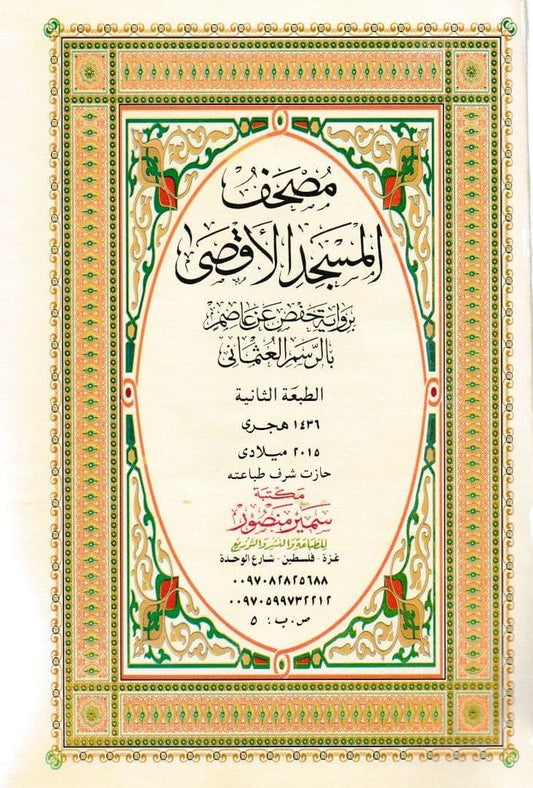 مصحف
المسجد الأقصى
برواية حفص عن عاصم
بالرسم العثماني
الطبعة الثانية
١٤٣٦ هجرى
٢٠١٥ ميلادى
حازت شرف طباعته
مكتبة
سمير منصور
للطباعة والنشر والتوزيع
غزة - فلسطين - شارع الوحدة
٠٠٩٧٠٨٢٨٢٥٦٨٨
٠٠٩٧٠٥٩٩٧٣٢٢١٢
ص . ب : ٥